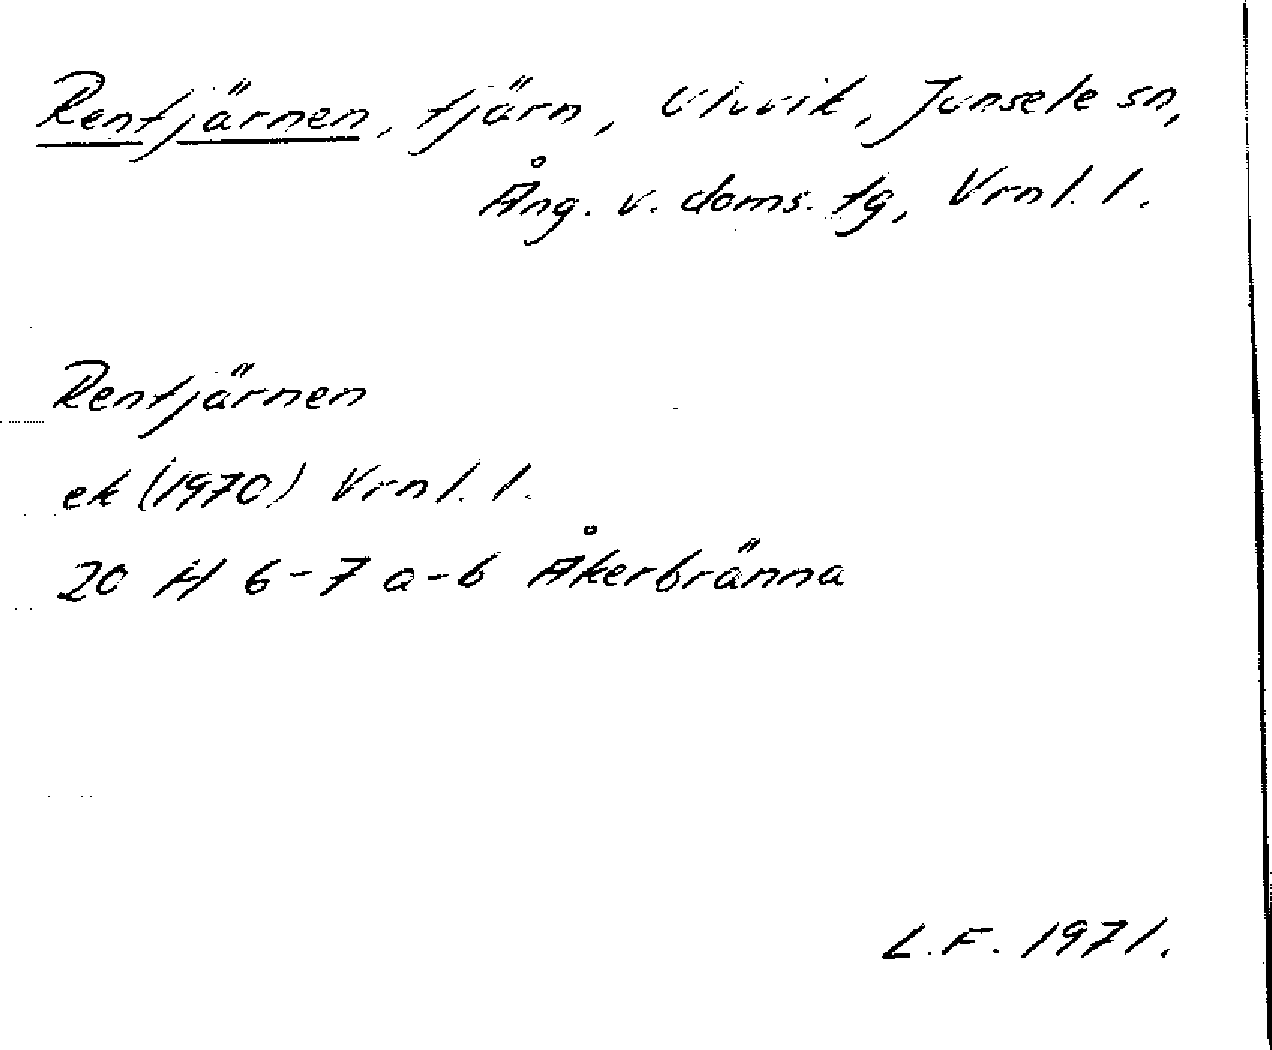 Rentjärnen, tjärn, Uluvik, Junsele sn,
Ång. v. doms. tg, Vrnl. l.
Rentjärnen
ek (1970) Vrnl. l.
20 H 6-7 a-b Åkerbränna
L.F. 1971.